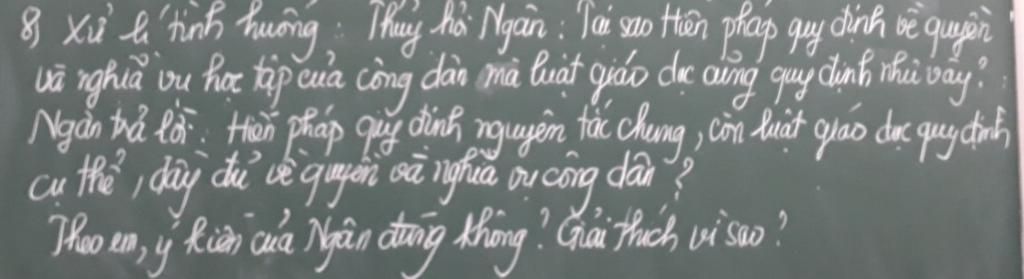 8) Xử lí tình huống: Thuỷ hỏi Ngân: Tại sao Hiến pháp quy định về quyền
và nghĩa vụ học tập của công dân mà luật giáo dục cũng quy định như vậy?
Ngân trả lời: Hiến pháp quy định nguyên tắc chung, còn luật giáo dục quy định
cụ thể, đầy đủ về quyền và nghĩa vụ công dân?
Theo em, ý kiến của Ngân đúng không? Giải thích vì sao?